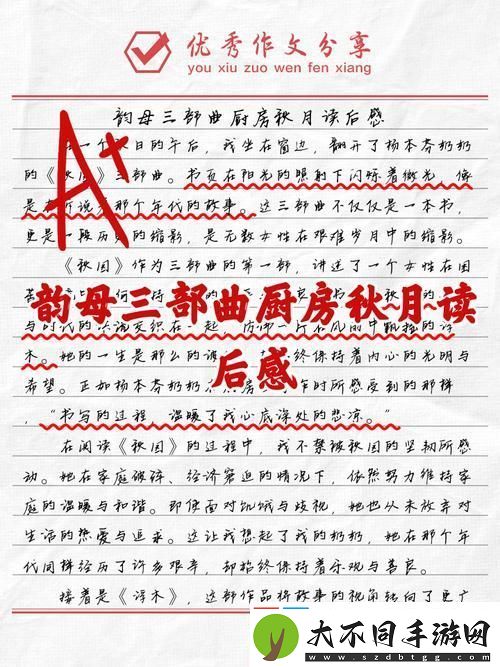 优秀作文分享
you xiu zuo wen fen xiang
韵母三部曲厨房秋月读后感
一个 日的午后，我坐在窗边，翻开了杨本芬奶奶
的《秋园》三部曲。书页在阳光的照射下闪烁着微光，像
是在诉说着那个年代的故事。这三部曲不仅仅是一本书，
更是一段历史的缩影，是无数女性在艰难岁月中的缩影。
A+
《秋园》作为三部曲的第一部，讲述了一个女性在困
韵母三部曲厨房秋月读
后感
与时代的 交织在一起，
木。她的一生是那么的 终保持着内心的光明与
希望。正如杨本芬奶奶 房 作时所感受到的那样
，“书写的过程，温暖了我心底深处的悲凉。”
在阅读《秋园》的过程中，我不禁被秋园的坚韧所感
动。她在家庭破碎、经济窘迫的情况下，依然努力维持家
庭的温暖与和谐。即便面对饥饿与歧视，她也从未放弃对
生活的热爱与追求。这让我想起了我的奶奶，她在那个年
代同样经历了许多艰辛，却始终保持着乐观与善良。
接着是《浮木》，这部作品将故事的视角转向了更广
大不同手游网
www.szdbtgg.com